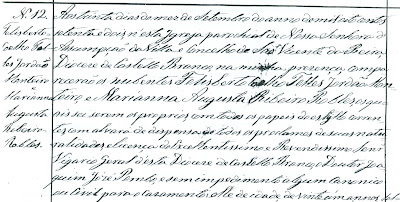 N.º 12
Felisberto
Coelho Tel-
les Jordão
Monteiro
e Marianna
Augusta
Ribeiro
Robles.
Aos trinta dias do mez de Setembro do anno de mil oito centos
setenta e dois n'esta Igreja parochial de Nossa Senhora d'
Assumpção da Villa e Concelho de São Vicente da Beira
Diocese de Castello Branco, na minha presença compa-
recerão os nubentes Felisberto Coelho Telles Jordão Mon-
teiro, e Marianna Augusta Ribeiro Robles os qu-
aes sei serem os proprios com todos os papeis do estylo corren-
tes com alvará de dispensa de todos os proclamas de suas natu-
ralidades e licença do Excellentissimo e Reverendissimo Senr
Vigario Geral desta Diocese de Castello Branco, o Doutor Joa-
quim José Pinto e sem impedimento algum canonico
ou civil para o casamento; elle de edade de vinte